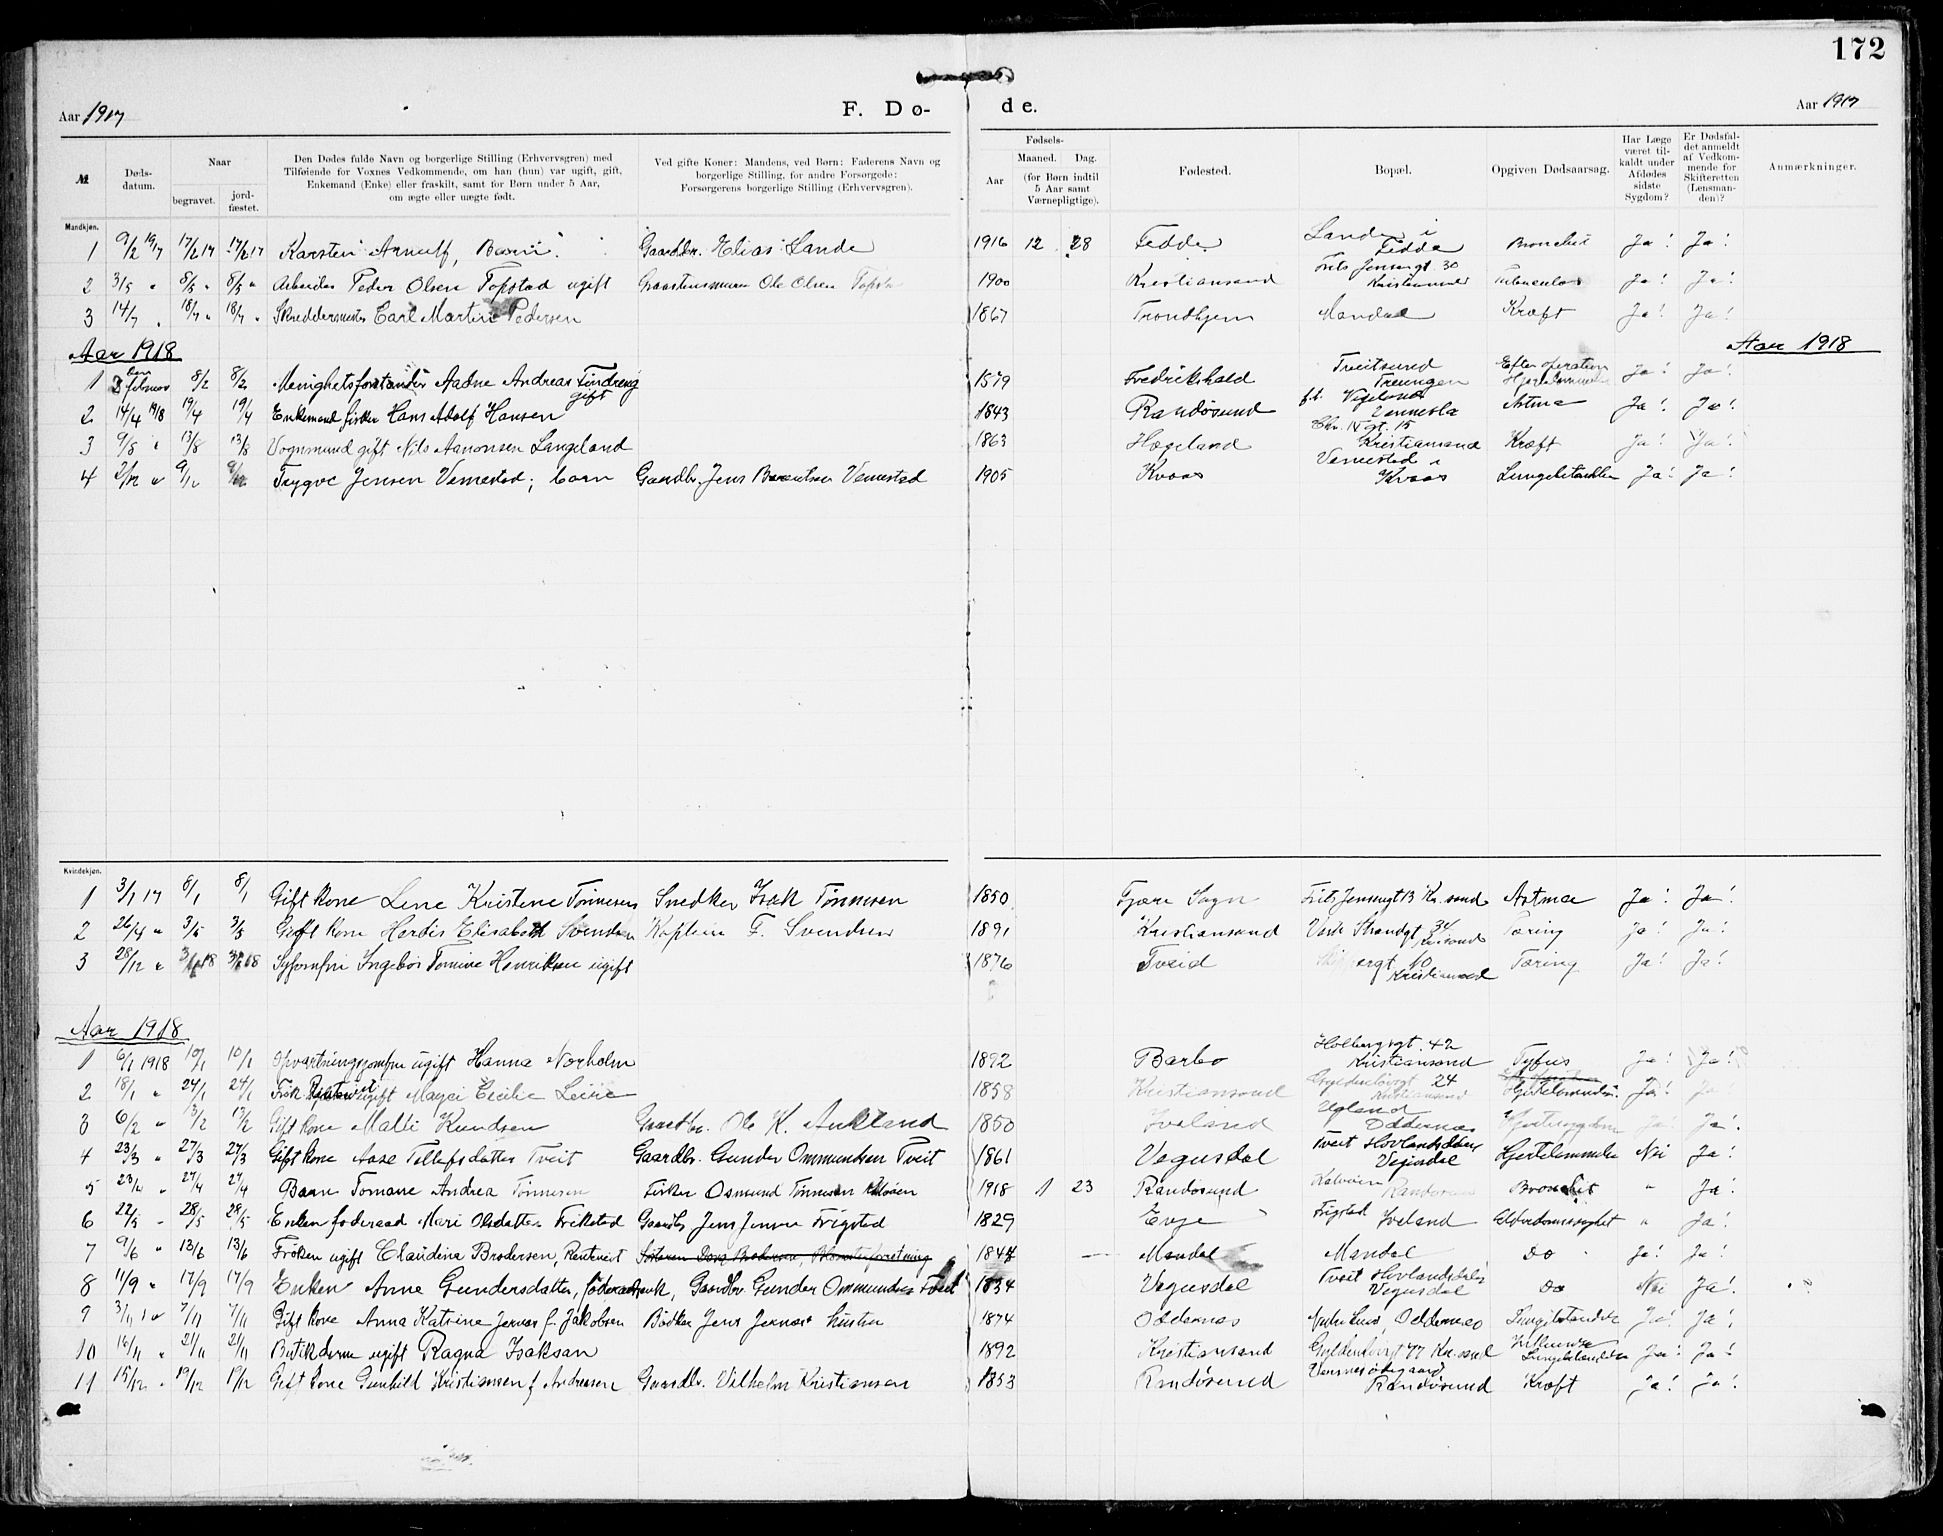 172
Aar 1917 F. Dø- de. Aar 1917
№ Døds-datum. Naar begravet. jord-fæstet. Den Dødes fulde Navn og borgerlige Stilling (Erhvervsgren) med Tilføiende for Voxnes Vedkommende, om han (hun) var ugift, gift, Enkemand (Enke) eller fraskilt, samt for Børn under 5 Aar, om ægte eller uægte født. Ved gifte Koner: Mandens, ved Børn: Faderens Navn og borgerlige Stilling, for andre Forsørgede: Forsørgerens borgerlige Stilling (Erhvervsgren). Fødsels- Aar Maaned. Dag. (for Børn indtil 5 Aar samt Værnepligtige). Fødested. Bopæl. Opgiven Dødsaarsag. Har Læge været til-kaldt under Afdødes sidste Sygdom? Er Dødsfal-det anmeldt af Vedkom-mende for Skifteretten (Lensman-den)? Anmærkninger.
Mandkjøn.
1 9/2 1917 17/2 17 17/2 17 Karsten Arnulf, Barn. Gaardbr. Elias Lande 1916 12 28 Fedde Lande i Fedde Bronchit Ja! Ja!
2 3/5 " 8/5 " 8/5 " Arbeider Peder Olsen Topstad ugift Ole Olsen 1900 Kristiansand Frits Jensengt. 30 Kristiansand Ja! Ja!
3 14/7 " 18/7 " 18/7 " Skreddermester Carl Martin Pedersen 1867 Trondhjem Mandal Kræft Ja! Ja!
Aar 1918 Aar 1918
1 februar 8/2 8/2 Menighetsforstander Aadne Andreas gift 1879 Fredrikshald Treitsund Treungen Efter operation Ja! Ja!
2 14/4 1918 19/4 19/4 Enkemand fisker Hans Adolf Hansen 1843 Randøsund Vegeland Vennesla Astma Ja! Ja!
3 9/8 " 13/8 13/8 Vognmand gift Nils Aanonsen Langeland 1863 Hægeland Kristiansand Kræft Ja! Ja!
4 2/12 " 9/12 9/12 Trygve Jensen Vemestad; barn Gaardbr. Jens Berentsen Vemestad 1905 Kvaas Vemestad i Kvaas Ja! Ja!
Kvindekjøn.
1 3/1 17 8/1 8/1 Gift kone Lene Kristene Tønnesen Snedker Isak Tønnesen 1850 Fjære Sogn Frits Jensengt 13 Kr.sand Astma Ja! Ja!
2 26/4 " 3/5 3/5 Gift kone Herdis Elisabeth Svendsen Kaptein F. Svendsen 1891 Kristiansand Vestre Strandgt 34 Kr.sand Tæring Ja! Ja!
3 28/12 " 3/1 18 3/1 18 Syjomfru Ingebor Tomine Henriksen ugift 1876 Tveid Kristiansand Tæring Ja! Ja!
Aar 1918
1 6/1 1918 10/1 10/1 Opvartningsjomfru ugift Hanna Norholm 1892 Barbo Holbergsgt. 42 Kristiansand Tyfus Ja! Ja!
2 18/1 " 24/1 24/1 Frøk. ugift Cecilie 1858 Kristiansand Gyldenløvsgt 24 Kristiansand Ja! Ja
3 6/2 " 13/2 13/2 Gift kone Malli Knudsen Gaardbr. Ole K. Aukland 1850 Iveland Ugland Oddernes Hjertesygdom Ja! Ja!
4 23/3 " 27/3 27/3 Gift kone Aase Tellefsdatter Tveit Gaardbr. Gunder Ommundsen Tveit 1861 Vegusdal Tveit Hovlandsdalen Vegusdal Hjertelammelse Nei Ja!
5 23/4 " 27/4 27/4 Barn Tomane Andrea Tønnesen Fisker Osmund Tønnesen 1918 1 23 Randøsund Randøsund Bronchit " Ja!
6 22/5 " 28/5 28/5 Enken føderaad Mari Olsdatter Frikstad Gaardbr Jens Jensen Frigstad 1829 Evje Frigstad Iveland Alderdomssvaghet " Ja!
7 9/6 " 13/6 13/6 Frøken ugift Claudina Brodersen, Rentenist 1844 Mandal Mandal Do Ja! Ja!
8 11/9 " 17/9 17/9 Enken Anne Gundersdatter, Gaardbr Gunder Ommundsen Tveit 1834 Vegusdal Tveit Hovlandsdalen Vegusdal Do Nei Ja!
9 3/11 " 7/11 7/11 Gift kone Anna Katrine Jernæs f. Jakobsen Bødker Jens Jernæs 1874 Oddernes Oddernes Ja! Ja!
10 16/11 " 21/11 21/11 Butikdame ugift Ragna Isaksen 1892 Kristiansand Gyldenløvsgt 77 Kr.sand Influenza Ja! Ja!
11 15/12 " 19/12 19/12 Gift kone Gunhild Kristiansen f. Andreasen Gaardbr. Vilhelm Kristiansen 1853 Randøsund Randøsund Kræft Ja! Ja!